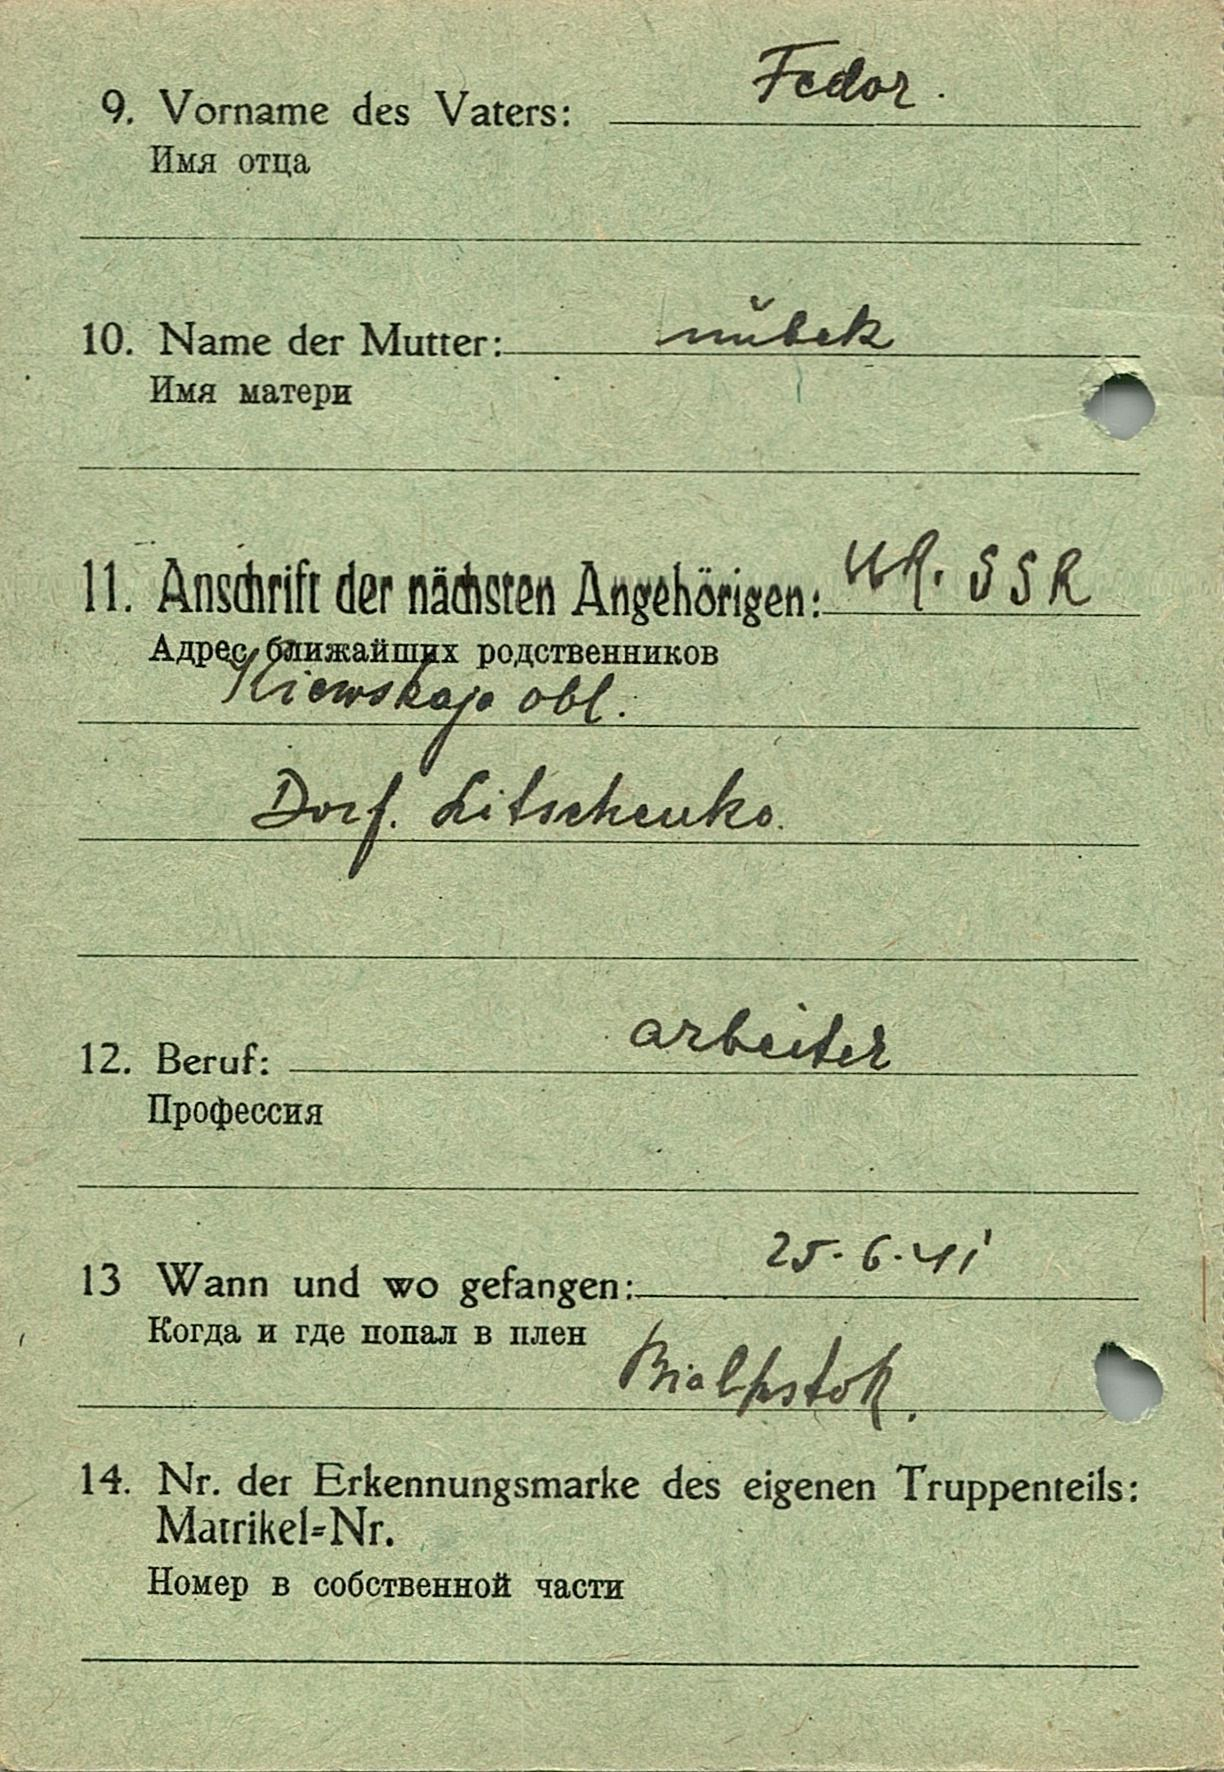 9. Vorname des Vaters: Fedor.
Имя отца
10. Name der Mutter: nübek
Имя матери
11. Anschrift der nächsten Angehörigen: UK. SSR
Адрес ближайших родственников
Kiewskaja obl.
Dorf. Litschenko.
12. Beruf: arbeiter
Профессия
13 Wann und wo gefangen: 25.6.41
Когда и где попал в плен
Bialystok.
14. Nr. der Erkennungsmarke des eigenen Truppenteils:
Matrikel=Nr.
Номер в собственной части